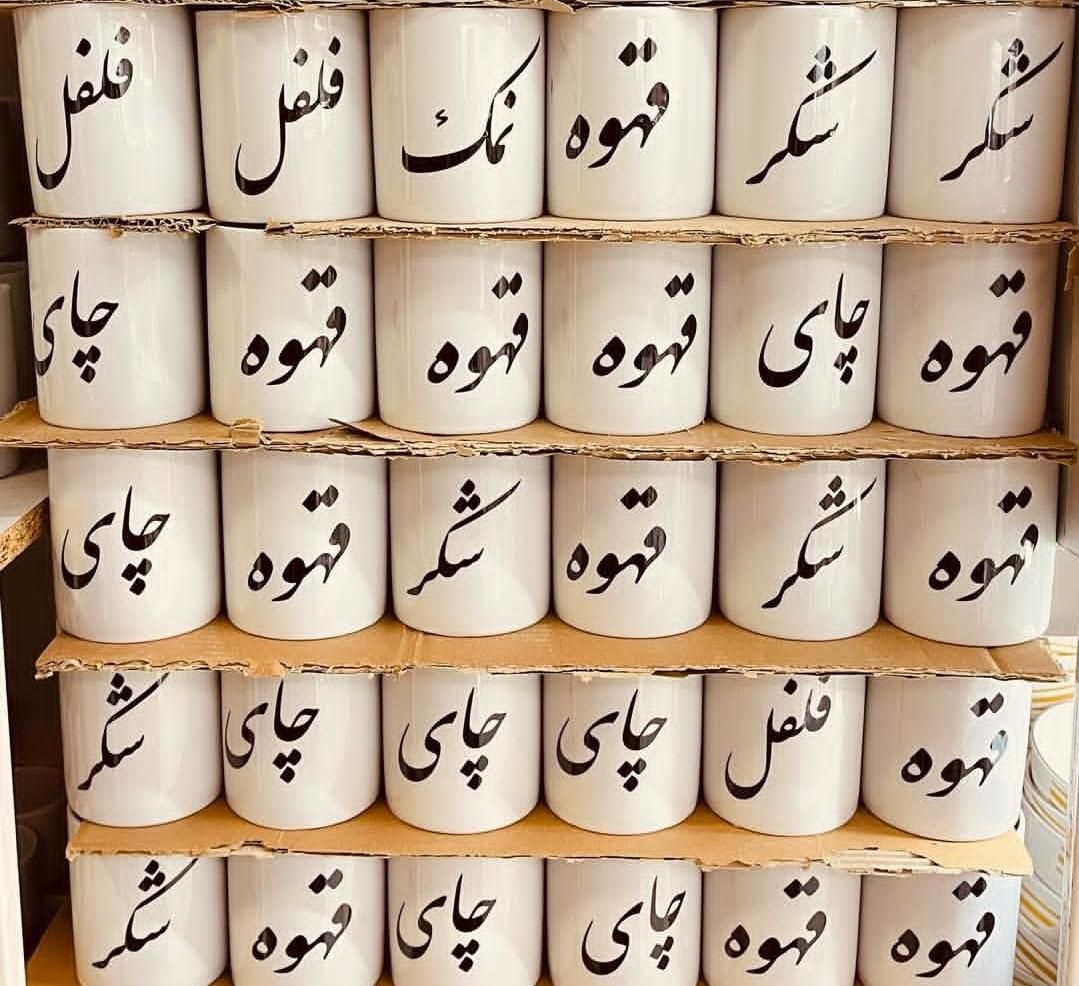 شکر شکر قهوه نمک فلفل فلفل
قهوه چای قهوه قهوه قهوه چای
قهوه شکر قهوه شکر قهوه چای
قهوه فلفل چای چای چای شکر
قهوه قهوه چای چای قهوه شکر